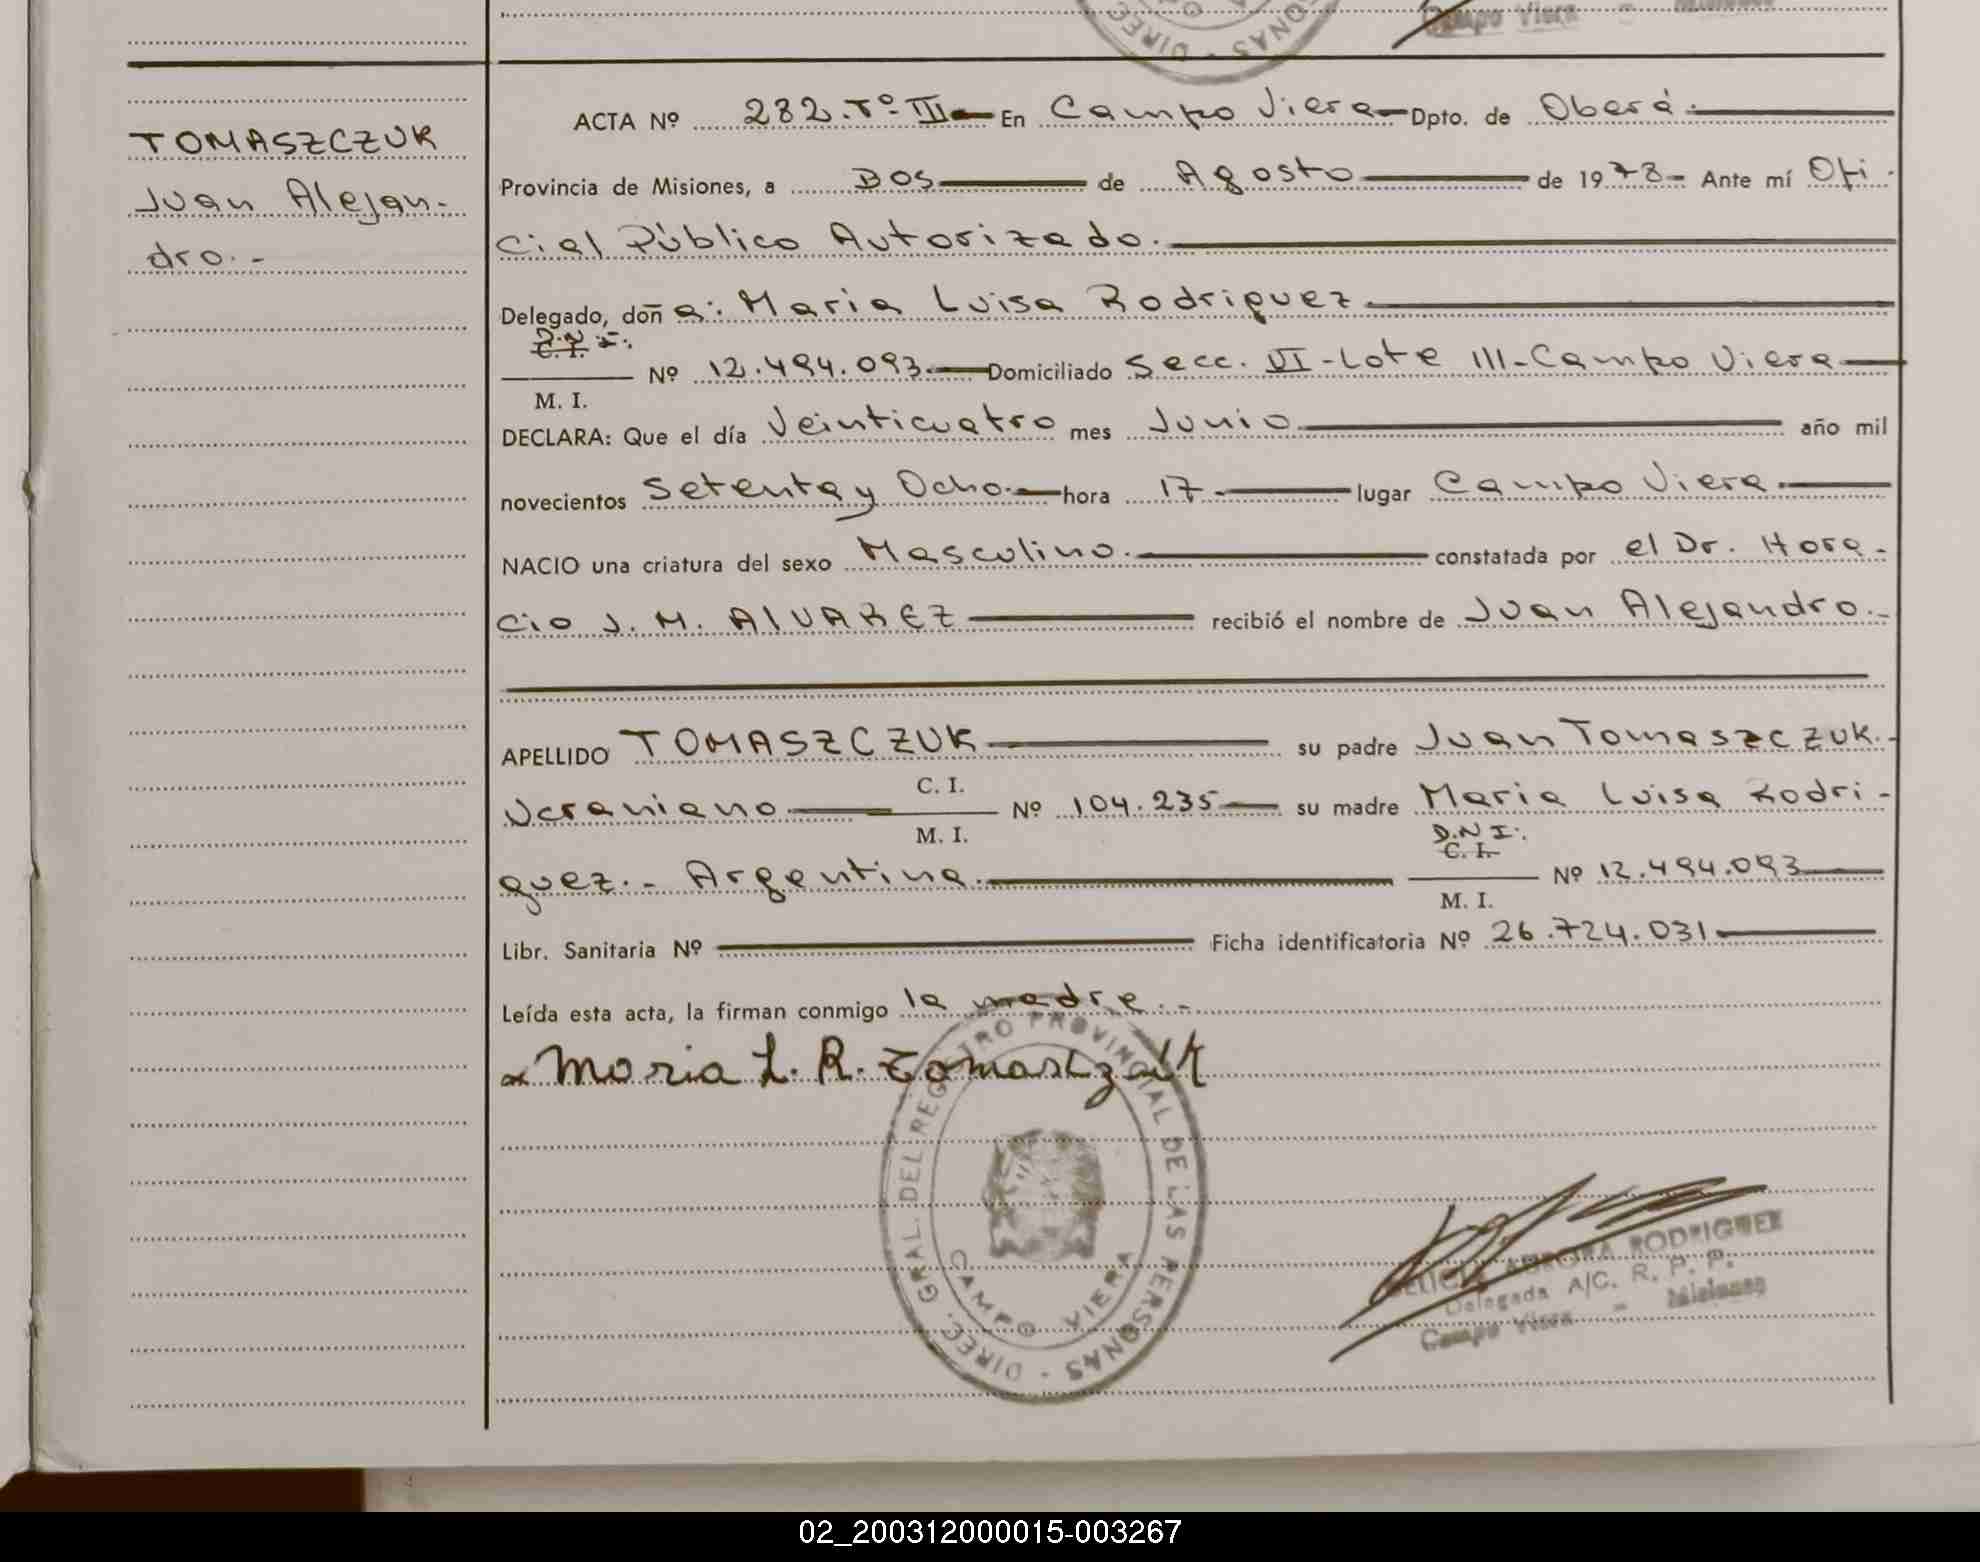 Campo Viera - Misiones
DIREC. PERSONAS -
TOMASZCZUK
Juan Alejan-
dro.-
ACTA Nº 282.Tº III En Campo Viera Dpto. de Oberá.
Provincia de Misiones, a DOS de Agosto de 1978- Ante mí Ofi-
cial Público Autorizado.
Delegado, doña: Maria Luisa Rodriguez
D.N.I.
C. I.
Nº 12.494.093. Domiciliado Secc. VI-Lote III-Campo Viera
M. I.
DECLARA: Que el día Veinticuatro mes Junio año mil
novecientos Setenta y Ocho. hora 17. lugar Campo Viera.
NACIO una criatura del sexo Masculino. constatada por el Dr. Hora-
cio J. M. ALVAREZ recibió el nombre de Juan Alejandro.-
APELLIDO TOMASZCZUK su padre Juan Tomaszczuk.-
C. I.
Ucraniano Nº 104.235 su madre Maria Luisa Rodri-
M. I.
D.N.I.
C. I.
guez.- Argentina. Nº 12.494.093
M. I.
Libr. Sanitaria Nº Ficha identificatoria Nº 26.724.031
Leída esta acta, la firman conmigo la madre.-
Maria L. R. Tomaszczuk
DIREC. GRAL. DEL REGISTRO PROVINCIAL DE LAS PERSONAS -
CAMPO VIERA
RODRIGUEZ
Delegada A/C. R. P. P.
Campo Viera - Misiones
02_200312000015-003267